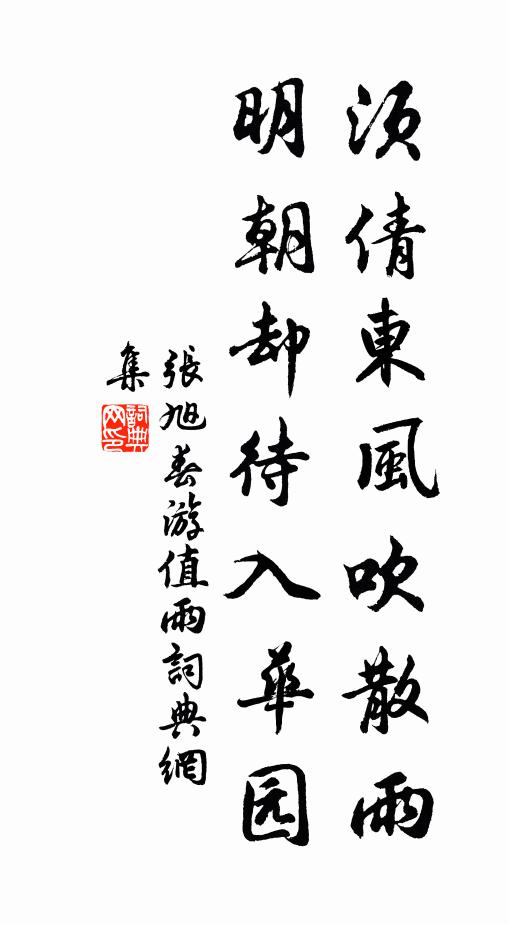 須倩東風吹散雨
明朝却待入華园
張旭春游值雨詞典網
集
詞典网印